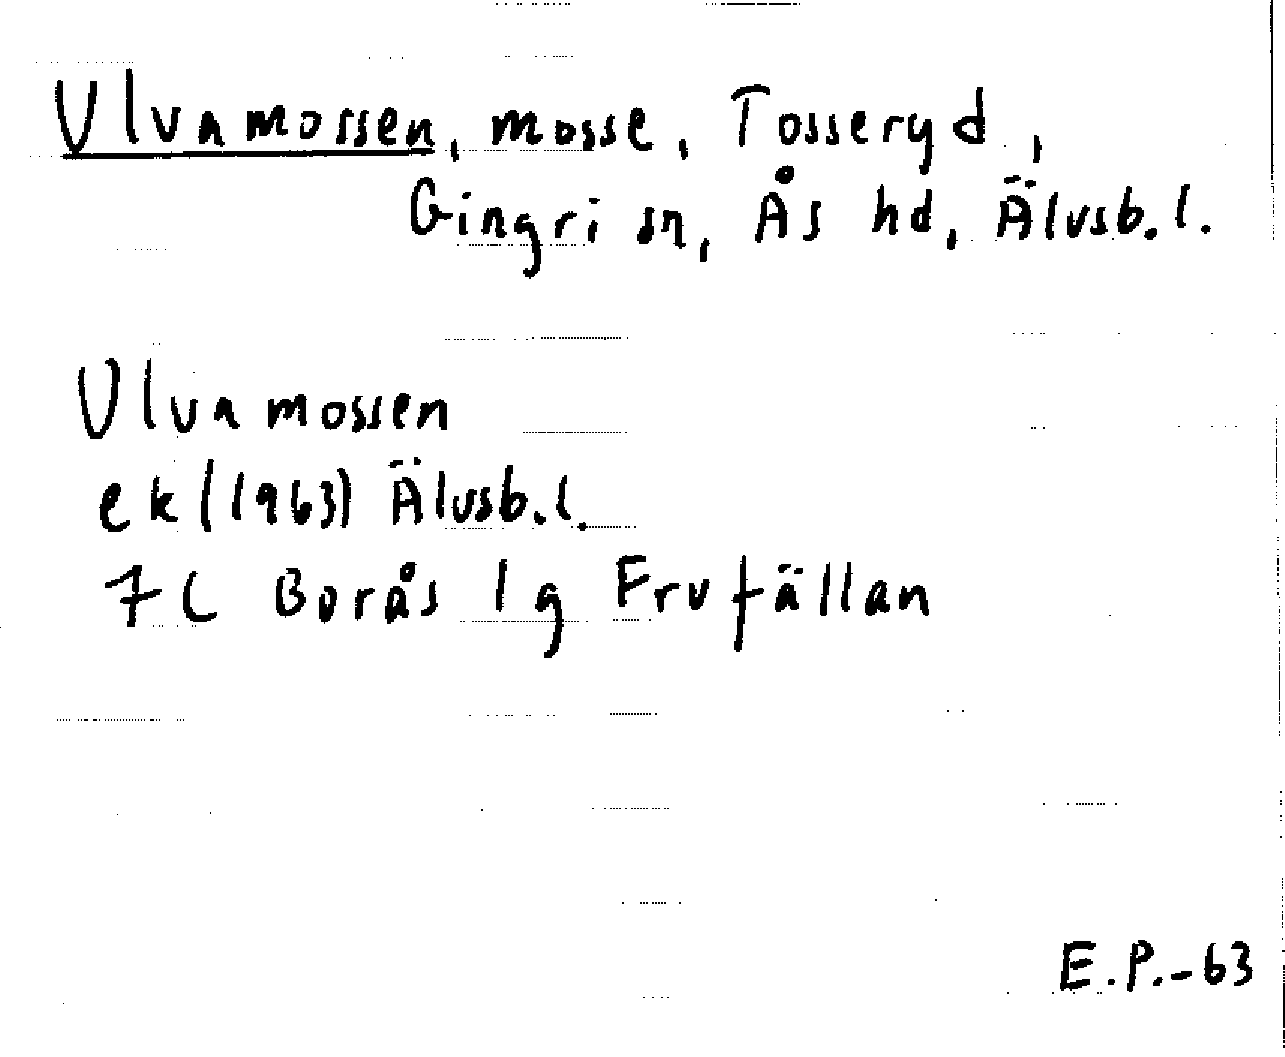 Ulvamossen, mosse, Tosseryd,
Gingri sn, Ås hd, Älvsb.l.
Ulvamossen
ek (1963) Älvsb.l.
7C Borås 1g Frufällan
E.P.-63